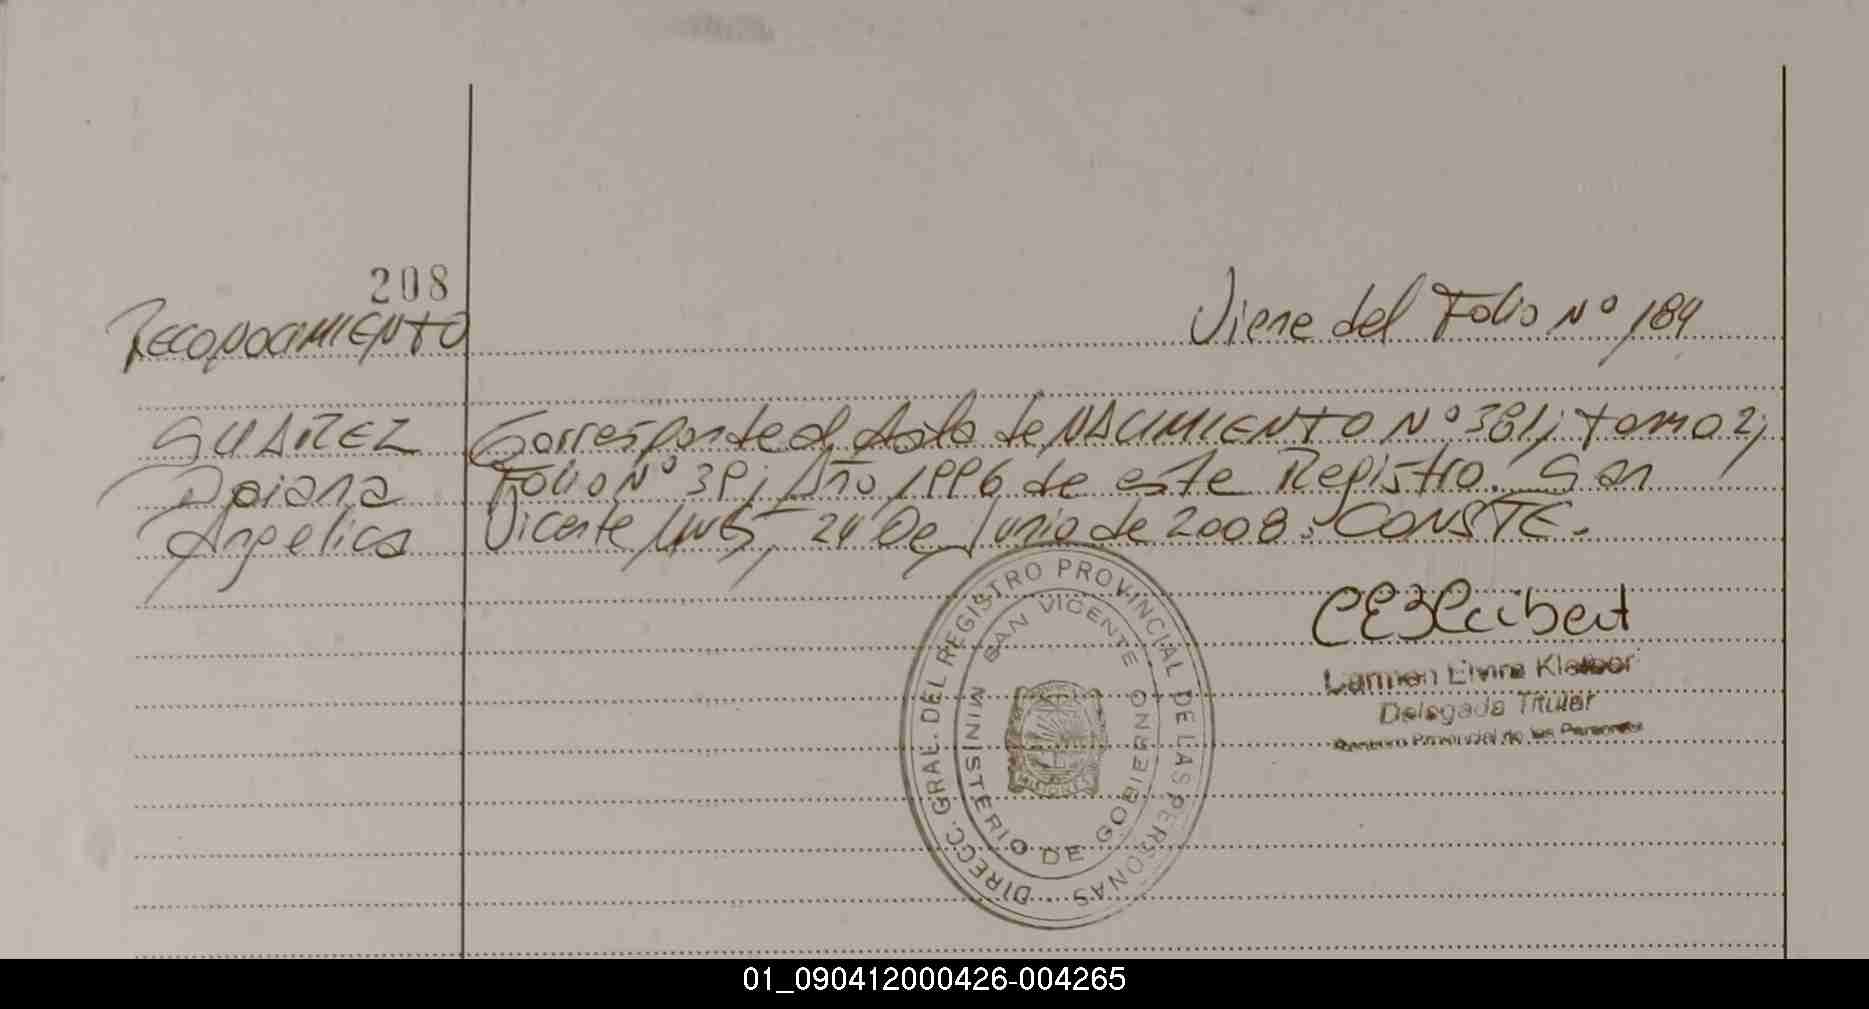 208
Viene del Folio Nº 184
RECONOCIMIENTO
SUAREZ
Daiana
Angelica
Corresponde al Acta de NACIMIENTO Nº 381; tomo 2;
Folio Nº 39; Año 1996 de este Registro. San
Vicente, 24 De Junio de 2008. CONSTE.
Carmen Elvira
Delegada Titular
Registro Provincial de las Personas
DIRECC. GRAL. DEL REGISTRO PROVINCIAL DE LAS PERSONAS
SAN VICENTE
MINISTERIO DE GOBIERNO
01_090412000426-004265